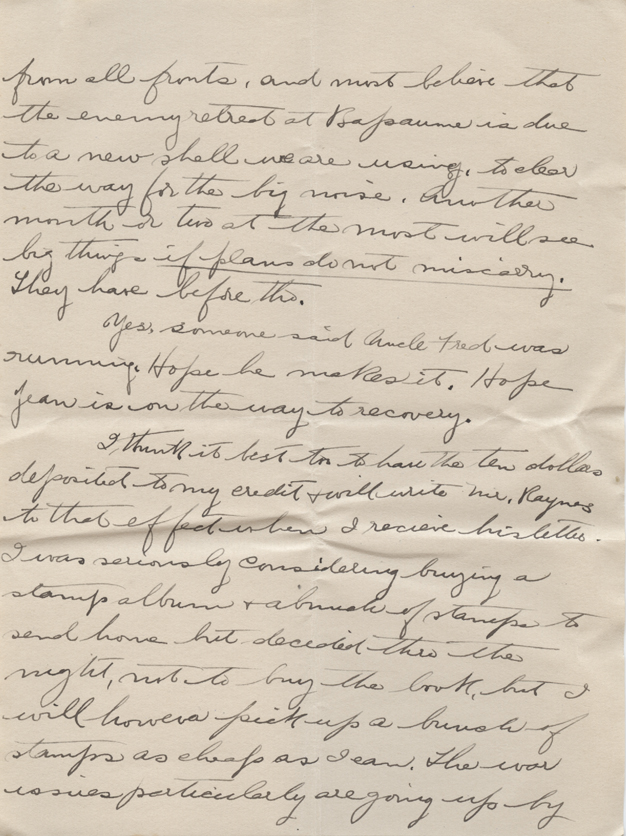 from all fronts, and most believe that
the enemy retreat at Bapaume is due
to a new shell we are using, to clear
the way for the big noise. Another
month or two at the most will see
big things if plans do not miscarry.
They have before tho.
Yes, someone said Uncle Fred was
running. Hope he makes it. Hope
Jean is on the way to recovery.
I think it best too to have the ten dollars
deposited to my credit & will write Mr. Raynes
to that effect when I recieve his letter.
I was seriously considering buying a
stamp album & a bunch of stamps to
send home but decided thro the
night, not to buy the book, but I
will however pick up a bunch of
stamps as cheap as I can. The war
issues particularly are going up by